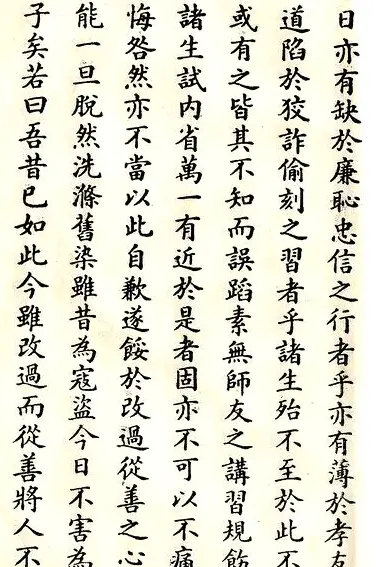 日亦有缺於廉恥忠信之行者乎亦有薄於孝友
道陷於狡詐偷刻之習者乎諸生殆不至於此不
或有之皆其不知而誤蹈素無師友之講習規飭
諸生試內省萬一有近於是者固亦不可以不痛
悔咎然亦不當以此自歉遂餒於改過從善之心
能一旦脫然洗滌舊染雖昔為寇盜今日不害為
子矣若曰吾昔已如此今雖改過而從善將人不